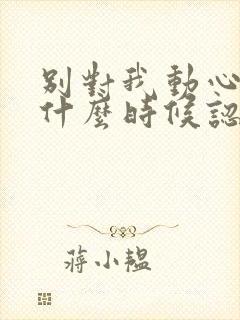 別對我動心
什麼時候認
蔣小韞